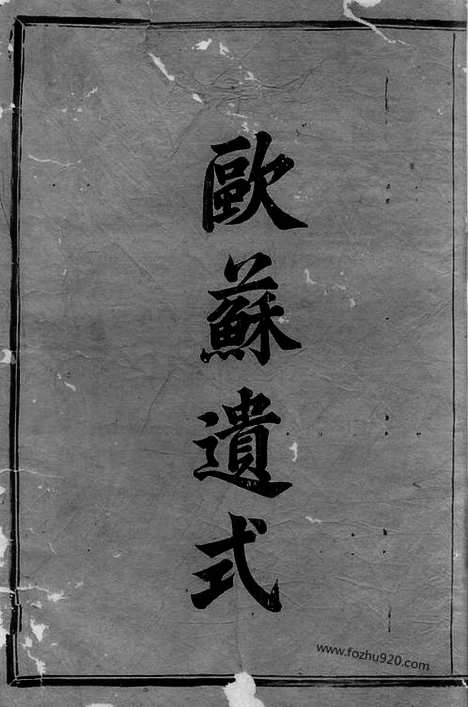 歐蘇遺式
www.fozhu920.com